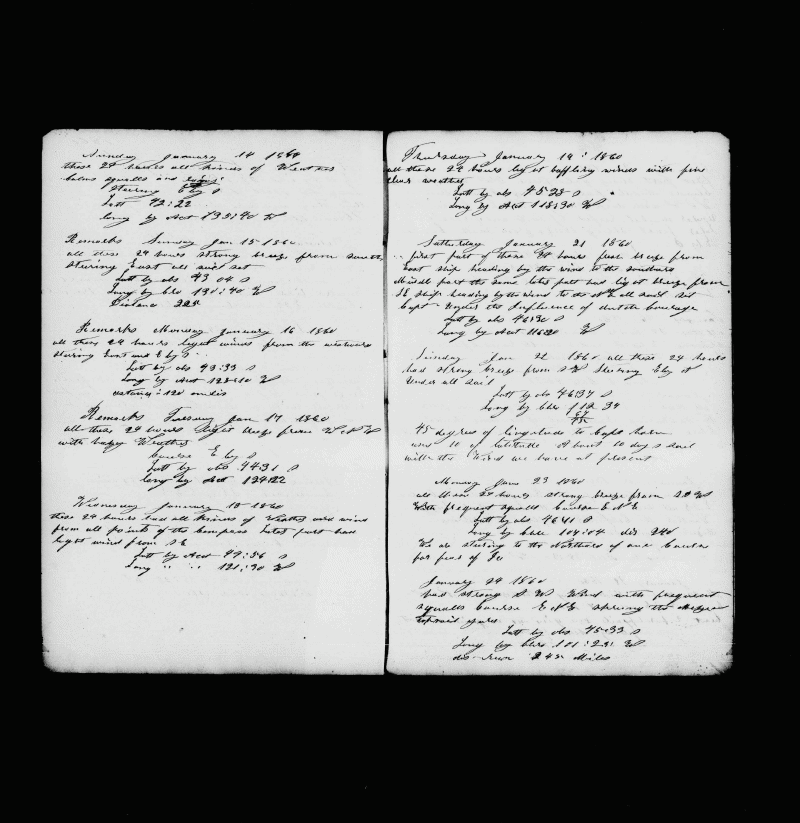 Sunday January 14 1860
these 24 hours all kinds of Weather
calms squalls and
Steering E by S
Latt 42:22
Long by Act 133:40 W
Remarks Sunday Jan 15 1860
all these 24 hours strong breeze from
Steering East all sail set
Latt by obs 43 04 S
Long by Chro 130:40 W
Distance 225
Remarks Monday January 16 1860
all these 24 hours light winds from the westward
steering East and E by S
Latt by obs 43:33 S
Long by Act 128:10 W
distance 120 miles
Remarks Tuesday Jan 17 1860
all these 24 hours light breeze from W N W
with hazy Weather
Course E by S
Latt by obs 44 31 S
long by Act 124:22
Wednesday January 18 1860
these 24 hours had all kinds of Weather and wind
from all points of the Compass Later part had
light wind from SE
Latt by Act 44:56 S
Long " " 121:30 W
Thursday January 19 : 1860
all these 24 hours light baffling winds with fine
clear weather
Latt by obs 45:28 S
Long by Act 118:30 W
Saturday January 21 1860
first part of these 24 hours fresh breeze from
East ship heading by the wind to the southard
Middle part the same later part had light breeze from
SE Ship heading by the wind to the all sail set
Capt under the Influence of dutch Courage
Latt by obs 46:30 S
Long by Act 116:20 W
Sunday Jan 22 1860 all these 24 hours
had strong breeze from S W Steering E by N
Under all sail
Latt by obs 46:37 S
Long by Chro 112 34
67
45
45 degrees of longitude to Cape horn
and 10 of latitude About 10 days sail
with the Wind we have at present
Monday Jan 23 1860
all these 24 hours strong breeze from S S W
With frequent squalls Course E N E
Latt by obs 46 41 S
Long by Chro 107:04 dis 240
We are steering to the Northard of our Course
for fear of Ice
January 24 1860
had strong S W Wind with frequent
squalls Course E N E sprung the
topsail yard
Latt by obs 45:33 S
Long by Chro 101:25 W
dis run 245 Miles